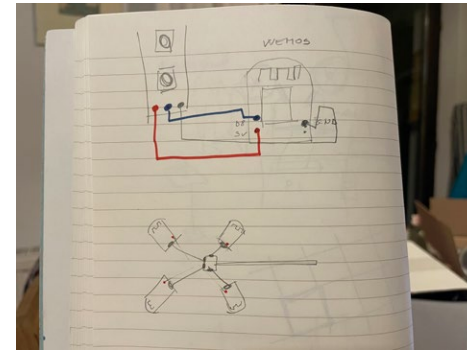 WEMOS
D8
5V
GND